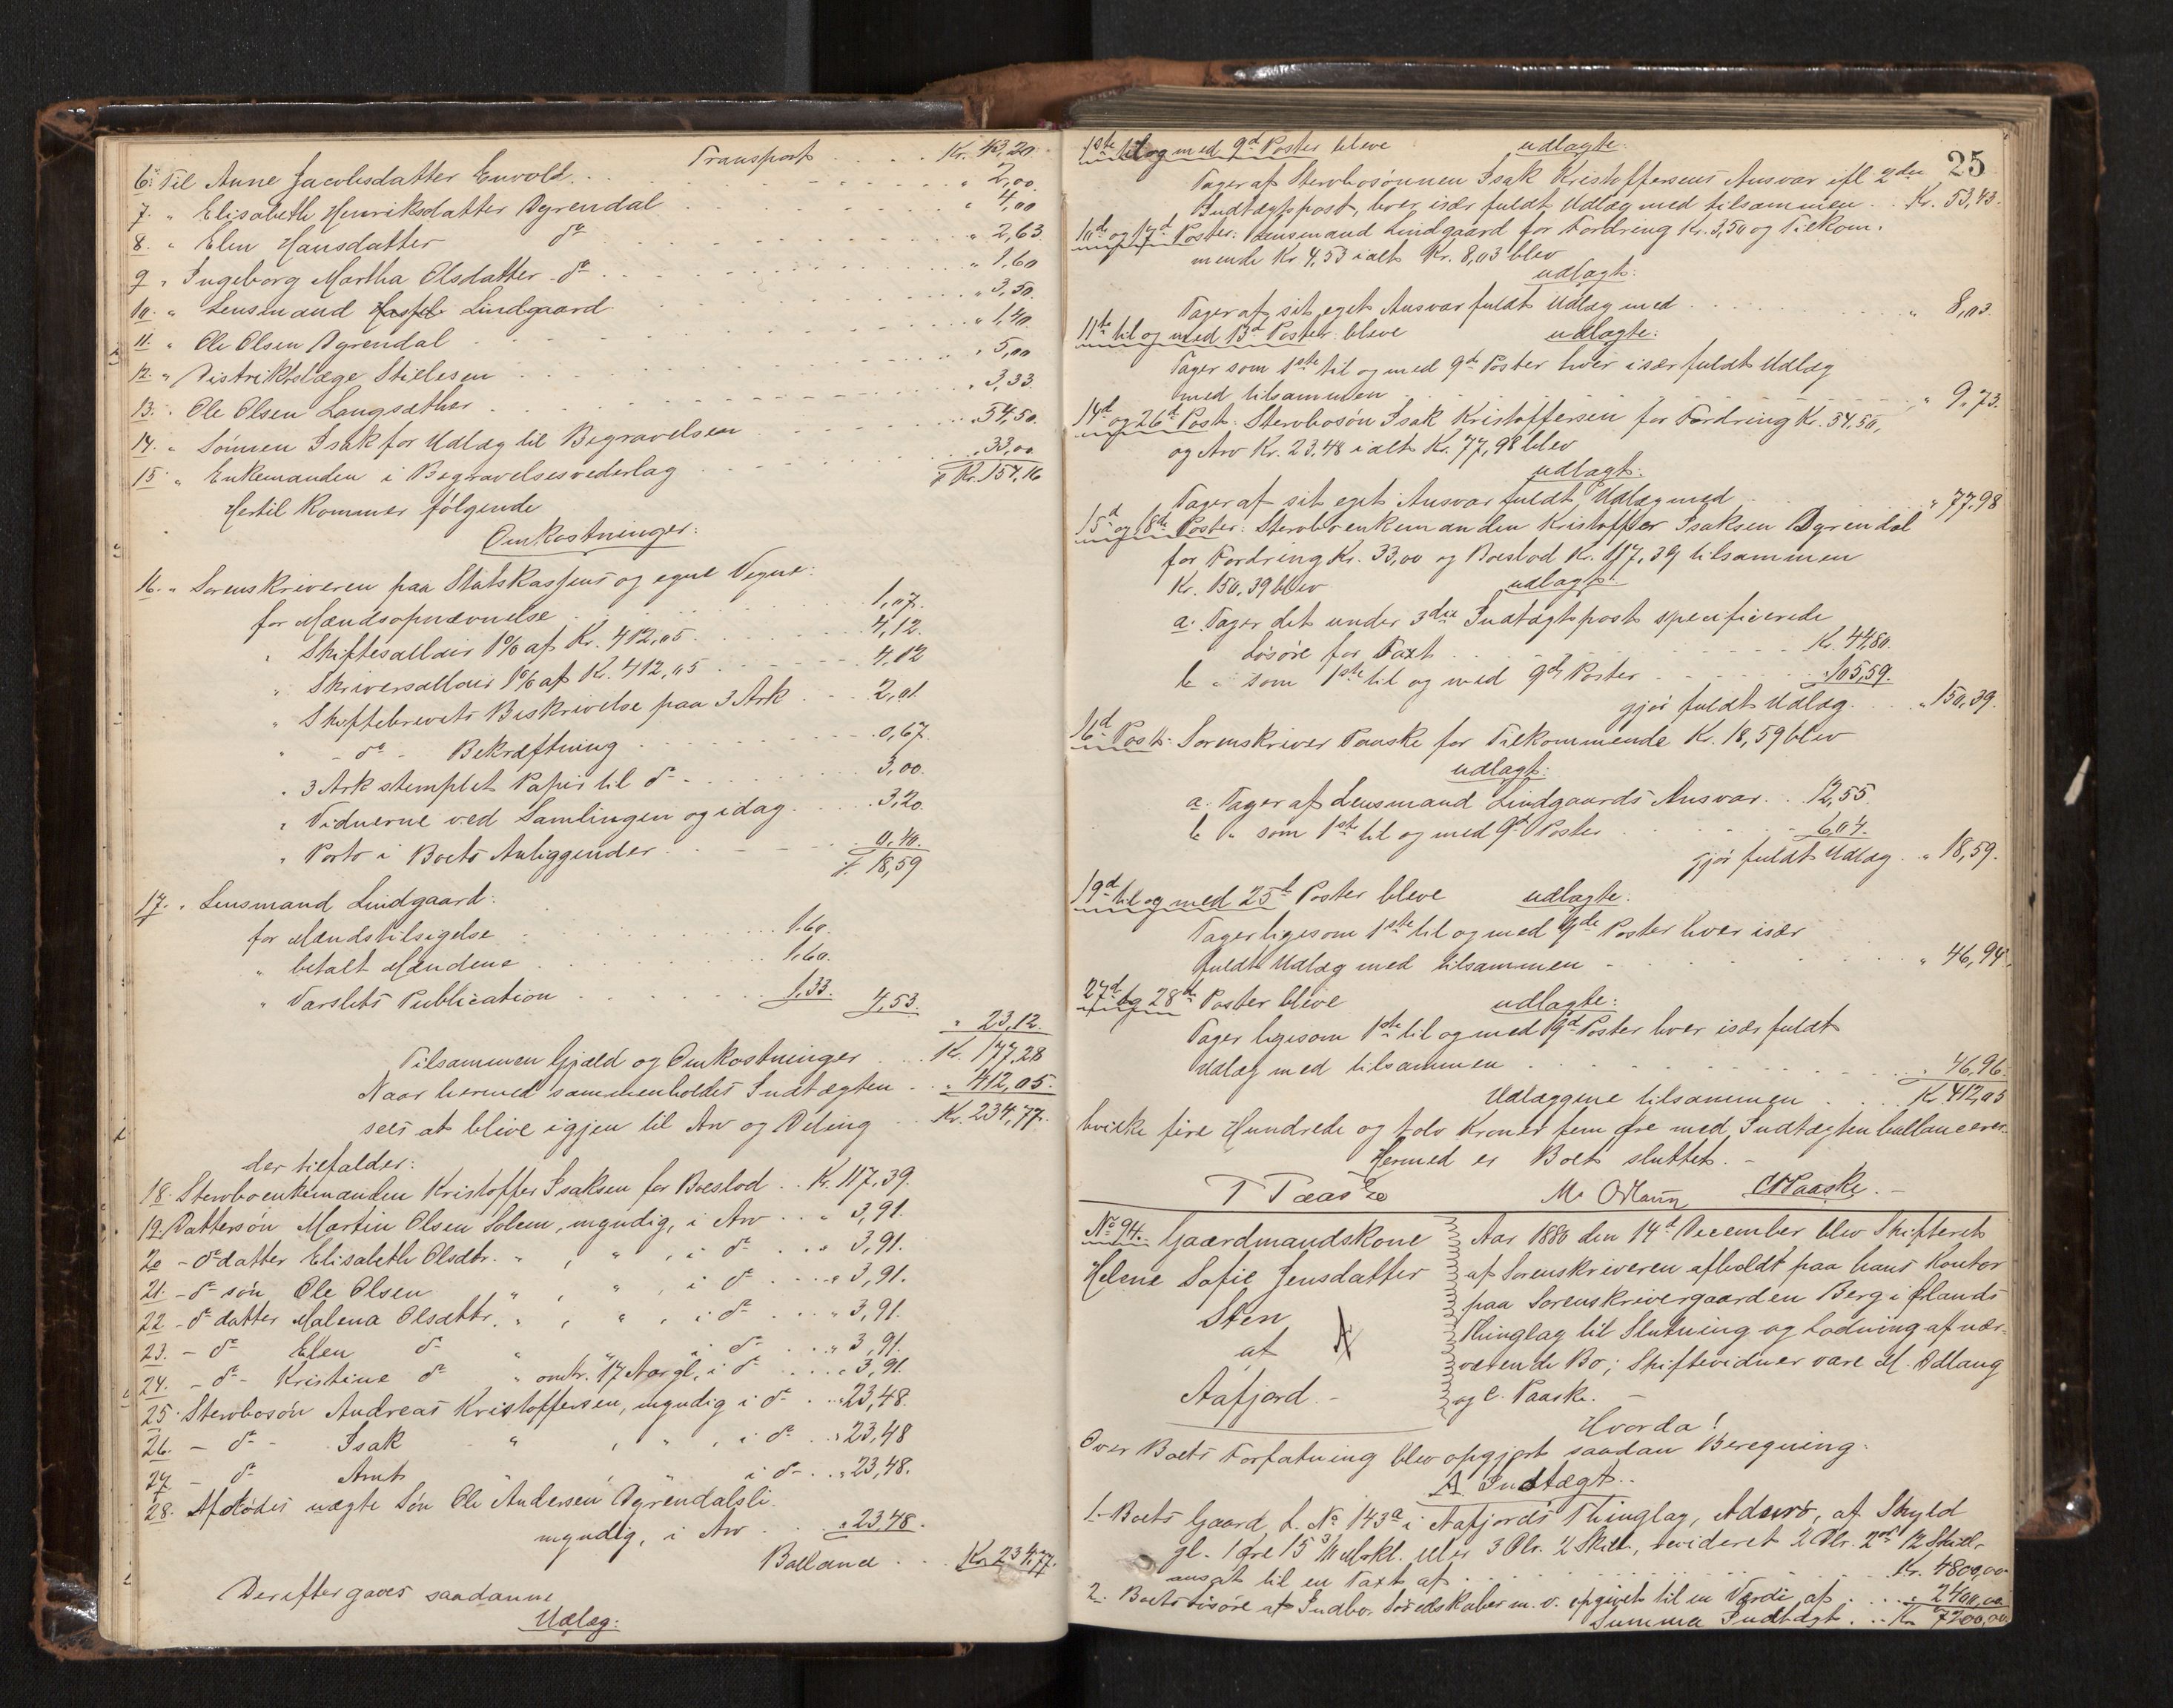 Transport . . . . Kr. 43,20.
6. Til Anne Jacobsdatter Envold . . . " 2,00.
7. " Elisabeth Henriksdatter Dyrendal . . . " 4,00
8. " Elen Hansdatter do . . . " 2,63
9. " Ingeborg Martha Olsdatter do . . . " 1,60
10. " Lensmand Lindgaard . . . " 3,50.
11. " Ole Olsen Dyrendal . . . " 1,40.
12. " Distriktslæge Stielesen . . . " 5,00
13. " Ole Olsen Langsæther . . . " 3,33.
14. " Sønnen Isak for Udlæg til Begravelsen . . . " 54,50.
15. " Enkemanden i Begravelsesvederlag . . . " 33,00.
Kr. 154,16
Hertil kommer følgende
Omkostninger:
16. " Sorenskriveren paa Statskassens og egne Vegne:
for Mændsopnævnelse . . . 1,07.
" Skiftesallair 1% af Kr. 412,05 . . . 4,12.
" Skriversallair 1% af Kr. 412,05 . . . 4,12
" Skiftebrevets Beskrivelse paa 3 Ark . . . 2,01.
" - do - Bekræftning . . . 0,67.
" 3 Ark stemplet Papir til do . . . 3,00.
" Vidnerne ved Samlingen og idag . . . 3,20.
" Porto i Boets Anliggender . . . 0,40.
18,59
17. " Lensmand Lindgaard:
for Mændstilsigelse . . . 1.60.
" betalt Mændene . . . 1.60.
" Varslets Publication . . . 1,33. 4,53.
" 23,12.
Tilsammen Gjæld og Omkostninger . . . Kr. 177,28
Naar hermed sammenholdes Indtægten . . " 412,05.
sees at blive igjen til Arv og Deling . . Kr. 234,77.
der tilfalder:
18. Stervboenkemanden Kristoffer Isaksen for Boeslod . . Kr. 117,39.
19. Dattersøn Martin Olsen Solem, myndig, i Arv . . " 3,91.
20 - do datter Elisabeth Olsdtr. " , " , i do . . . " 3,91.
21. - do søn Ole Olsen " , " , i do . . . " 3,91.
22 - do datter Malena Olsdttr. " , " , i do . . . " 3,91.
23. - do Elen do " " i do . . . " 3,91.
24. - do - Kristine do " omtr. 17 Aar gl, i do . . . " 3,91.
25. Stervbosøn Andreas Kristoffersen, myndig i do . . " 23,48.
26. - do - Isak " , " , i do . . " 23,48
27. - do Arnt " , " i do . . " 23,48.
28. Afdødes uægte Søn Ole Andersen Dyrendalsli.
myndig, i Arv . . . " 23,48.
Ballance . . . Kr. 234,77.
Derefter gaves saadanne
Udlæg:
25
1ste til og med 9d Poster bleve udlagte:
Tager af Stervbosønnen Isak Kristoffersens Ansvar ifl. 2den
Indtægtspost, hver især fuldt Udlæg med tilsammen . . Kr. 53,43.
10d og 17d Poster: Lensmand Lindgaard for Fordring Kr. 3,50 og Tilkom-
mende Kr. 4,53 ialt Kr. 8,03 blev
udlagt:
Tager af sit eget Ansvar fuldt Udlæg med . . . " 8,03.
11te til og med 13d Poster bleve udlagte:
Tager som 1ste til og med 9d Poster hver især fuldt Udlæg
med tilsammen . . . " 9,73.
14d og 26d Post: Stervbosøn Isak Kristoffersen for Fordring Kr. 54,50,
og Arv Kr. 23,48 ialt Kr. 77,98 blev
udlagt:
Tager af sit eget Ansvar fuldt Udlæg med . . . " 77,98
15d og 18de Poster: Stervboenkemanden Kristoffer Isaksen Dyrendal
for Fordring Kr. 33,00 og Boeslod Kr. 117,39 tilsammen
Kr. 150,39 blev udlagt:
a. Tager det under 3die Indtægtspost specificerede
Løsøre for Taxt . . . Kr. 44,80.
b " som 1ste til og med 9d Poster . . . " 105,59.
gjør fuldt Udlæg . . . " 150,39.
16d Post: Sorenskriver Paaske for Tilkommende Kr. 18,59 blev
udlagt:
a. Tager af Lensmand Lindgaards Ansvar . . 12,55.
b " som 1ste til og med 9d Poster . . . 6,04.
gjør fuldt Udlæg . . " 18,59.
19d til og med 25d Poster bleve udlagte:
Tager ligesom 1ste til og med 9de Poster hver især
fuldt Udlæg med tilsammen . . . " 46,94.
27d og 28d Poster bleve udlagte:
Tager ligesom 1ste til og med 9d Poster hver især fuldt
Udlæg med tilsammen . . . " 46,96.
Udlæggene tilsammen . . . Kr. 412,05
hvilke fire Hundrede og tolv Kroner fem Øre med Indtægten ballancerer.
Hermed er Boet sluttet. -
T Paaske M. Odlaug C Paaske. -
No 94. Gaardmandskone
Helene Sofie Jensdatter
Sten
at
Aafjord. -
Aar 1880 den 14d December blev Skifteret
af Sorenskriveren afholdt paa hans Kontor
paa Sorenskrivergaarden Berg i Ørlands
Thinglag til Slutning og Lodning af nær-
værende Bo; Skiftevidner vare M. Odlaug
og C. Paaske. -
Hvorda!
Over Boets Forfatning blev opgjort saadan Beregning:
A. Indtægt.
1. Boets Gaard L. No 143a i Aafjords Thinglag, af Skyld
gl. 1 Øre 15 3/ Mkl. eller 3 Dlr. 2 Skill, revideret 2 Dlr. 2 ort 12 Skill.
ansat til en Taxt af . . . Kr. 4800,00
2. Boets Løsøre af Indbo, Redskaber m. v. opgivet til en Værdi af . . . " 2400,00
Summa Indtægt . . . Kr. 7200,00